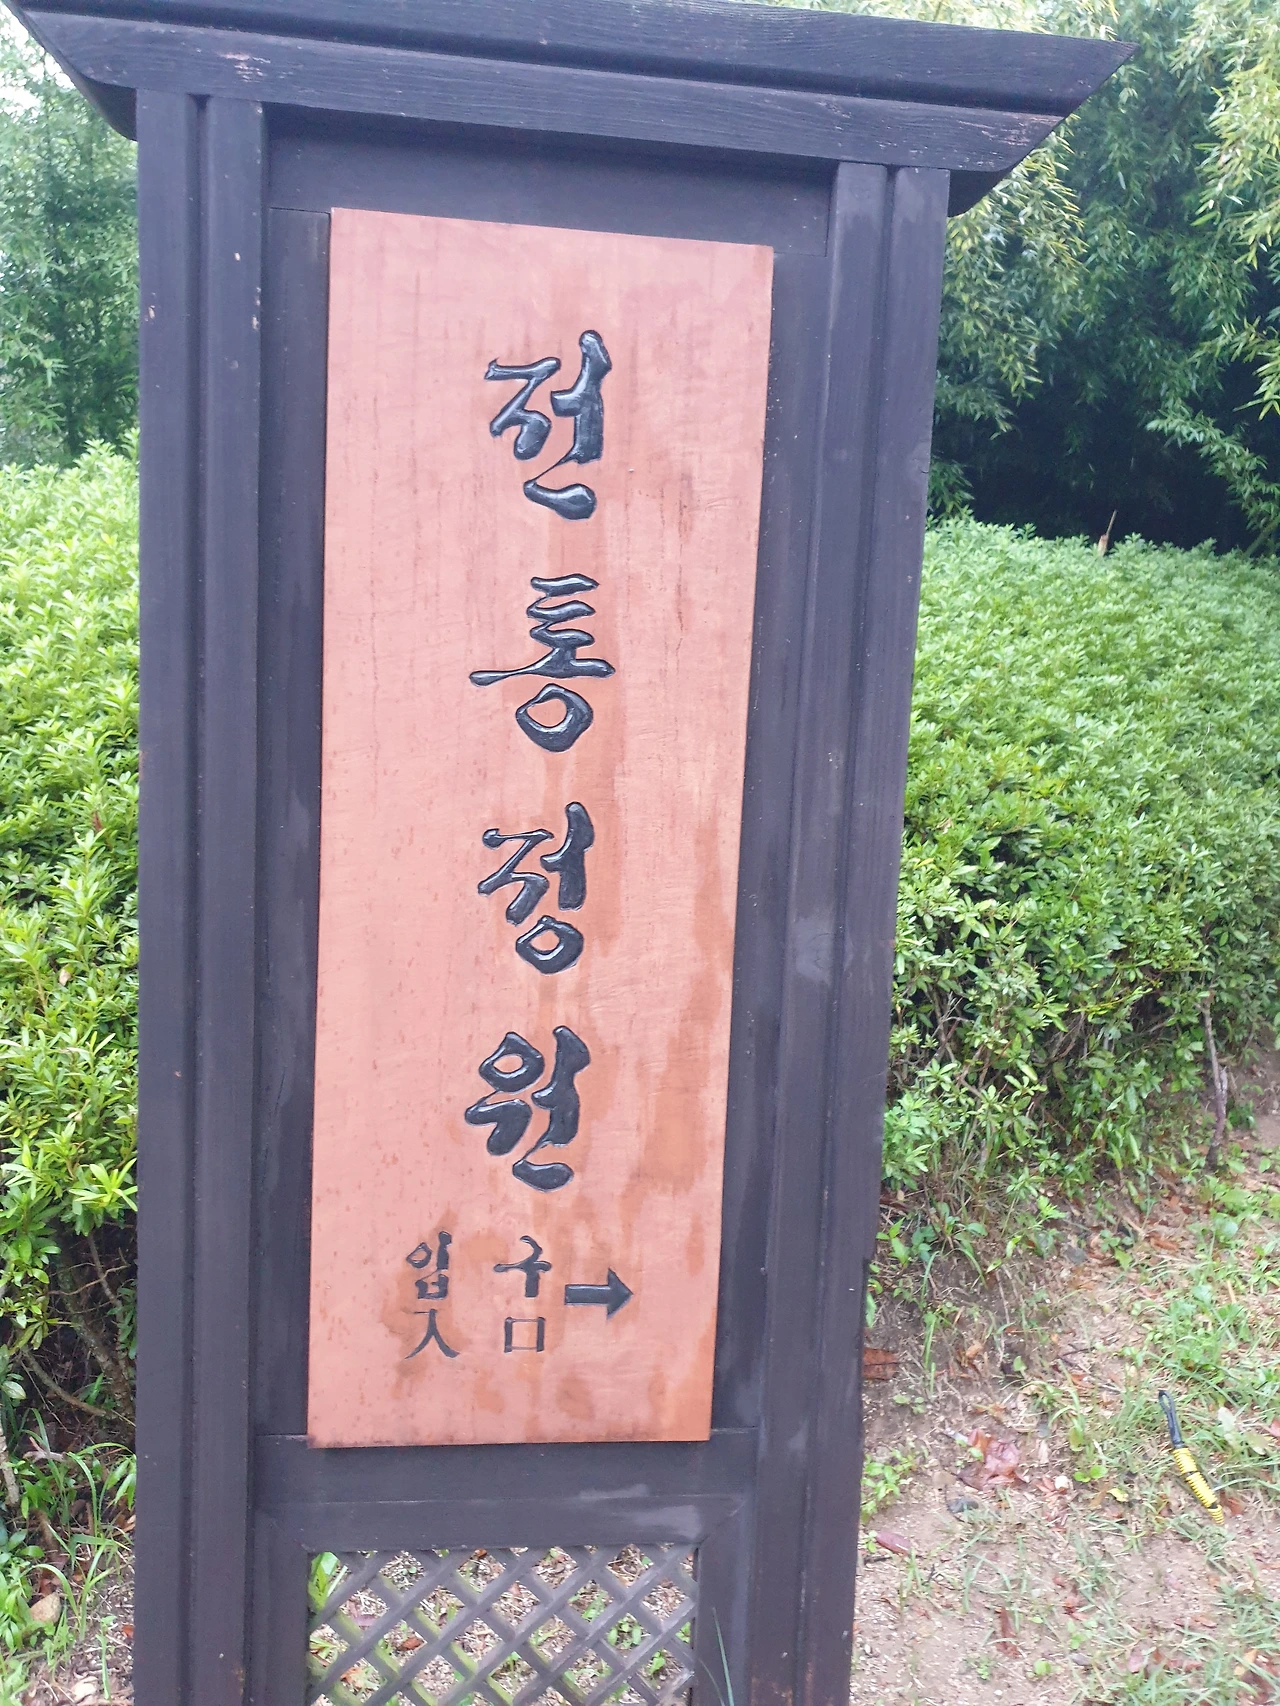 전통정원
입구 →
入口